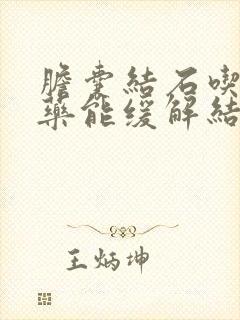 膽囊結石喫
藥能缓解結
王炳坤